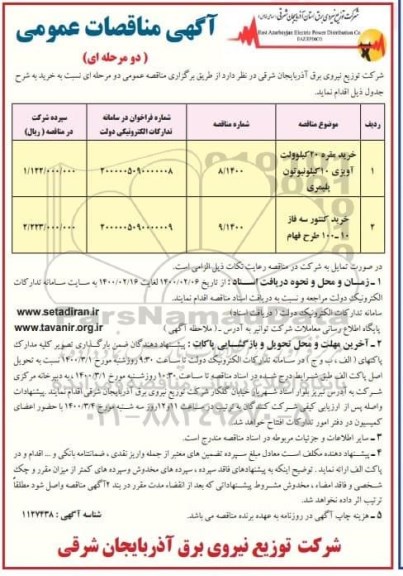 شرکت توزیع نیروی برق استان آذربایجان شرقی
East Azarbayjan Electric Power Distribution Co.
آگهی مناقصات عمومی
( دو مرحله ای )
شرکت توزیع نیروی برق آذربایجان شرقی در نظر دارد از طریق برگزاری مناقصه عمومی دو مرحله ای نسبت به خرید به شرح
جدول ذیل اقدام نماید.
ردیف موضوع مناقصه شماره مناقصه شماره فراخوان در سامانه تدارکات الکترونیکی دولت سپرده شرکت در مناقصه ( ریال)
۱ خرید مقره ۲۰کیلوولت آویزی ۱۰کیلونیوتون پلیمری ۸/۱۴۰۰ ۲۰۰۰۰۰۵۰۹۰۰۰۰۰۰۸ ۱/۱۴۲/۰۰۰/۰۰۰
۲ خرید کنتور سه فاز ۱۰-۱۰۰ طرح فهام ۹/۱۴۰۰ ۲۰۰۰۰۰۵۰۹۰۰۰۰۰۰۹ ۲/۲۲۳/۰۰۰/۰۰۰
در صورت تمایل به شرکت در مناقصه رعایت نکات ذیل الزامی است.
۱ - زمـان و محل و نحوه دریافت اسناد : از تاریخ ۱۴۰۰/۰۲/۰۶ لغایت ۱۴۰۰/۰۲/۱۶ به سایت سامانه تدارکات
الکترونیک دولت مراجعه و نسبت به دریافت اسناد مناقصه اقدام نمایند.
سامانه تدارکات الکترونیک دولت ( دریافت اسناد) www.setadiran.ir
پایگاه اطلاع رسانی معاملات شرکت توانیر به آدرس ( ملاحظه آگهی ) www.tavanir.org.ir
۲ - آخرین مهلت و محل تحویل و بازگشایی پاکات : پیشنهاد دهندگان ضمن بارگذاری تصویر کلیه مدارک
پاکتهای ( الف ، ب و ج ) در سامانه تدارکات الکترونیک دولت تا ساعت ۹:۳۰ روزشنبه مورخ ۱۴۰۰/۳/۱ نسبت به تحویل
اصل پاکت الف طبق شرایط درج شده در اسناد مناقصه تا ساعت ۱۰:۳۰ روزشنبه مورخ ۱۴۰۰/۳/۱ ، به دبیرخانه مرکزی
شرکت به آدرس تبریز بلوار استاد شهریار خیابان گلکار شرکت توزیع نیروی برق آذربایجان شرقی اقدام نمایند. پیشنهادات
واصله پس از ارزیابی کیفی شرکت کنندگان به ترتیب در ساعت ۱۱و۱۲ روز سه شنبه مورخ ۱۴۰۰/۳/۴ با حضور اعضای
کمیسیون در دفتر امور تدارکات افتتاح خواهد شد.
۳ - سایر اطلاعات و جزئیات مربوطه در اسناد مناقصه مندرج است.
۴ - پیشنهاد دهنده مکلف است معادل مبلغ سپرده تضمین های معتبر از جمله واریز نقدی ، ضمانتنامه بانکی و ... اقدام و در
پاکت الف ارائه نماید . توضیح اینکه به پیشنهادهای فاقد سپرده ، سپرده های مخدوش وسپرده های کمتر از میزان مقرر و چک
شخصی و فاقد امضاء ، مخدوش مشروط وپیشنهاداتی که بعد از انقضاء مدت مقرر در بند ۲آگهی مناقصه واصل شود مطلقاً
ترتیب اثر داده نخواهد شد.
۵ - هزینه چاپ آگهی در روزنامه به عهده برنده مناقصه می باشد. شناسه آگهی : ۱۱۲۷۴۳۸
شرکت توزیع نیروی برق آذربایجان شرقی
ParsNamadData
پایگاه اطلاع رسانی مناقصه و مزایده
۰۲۱-۸۸۳۴۹۶۷۰-۵